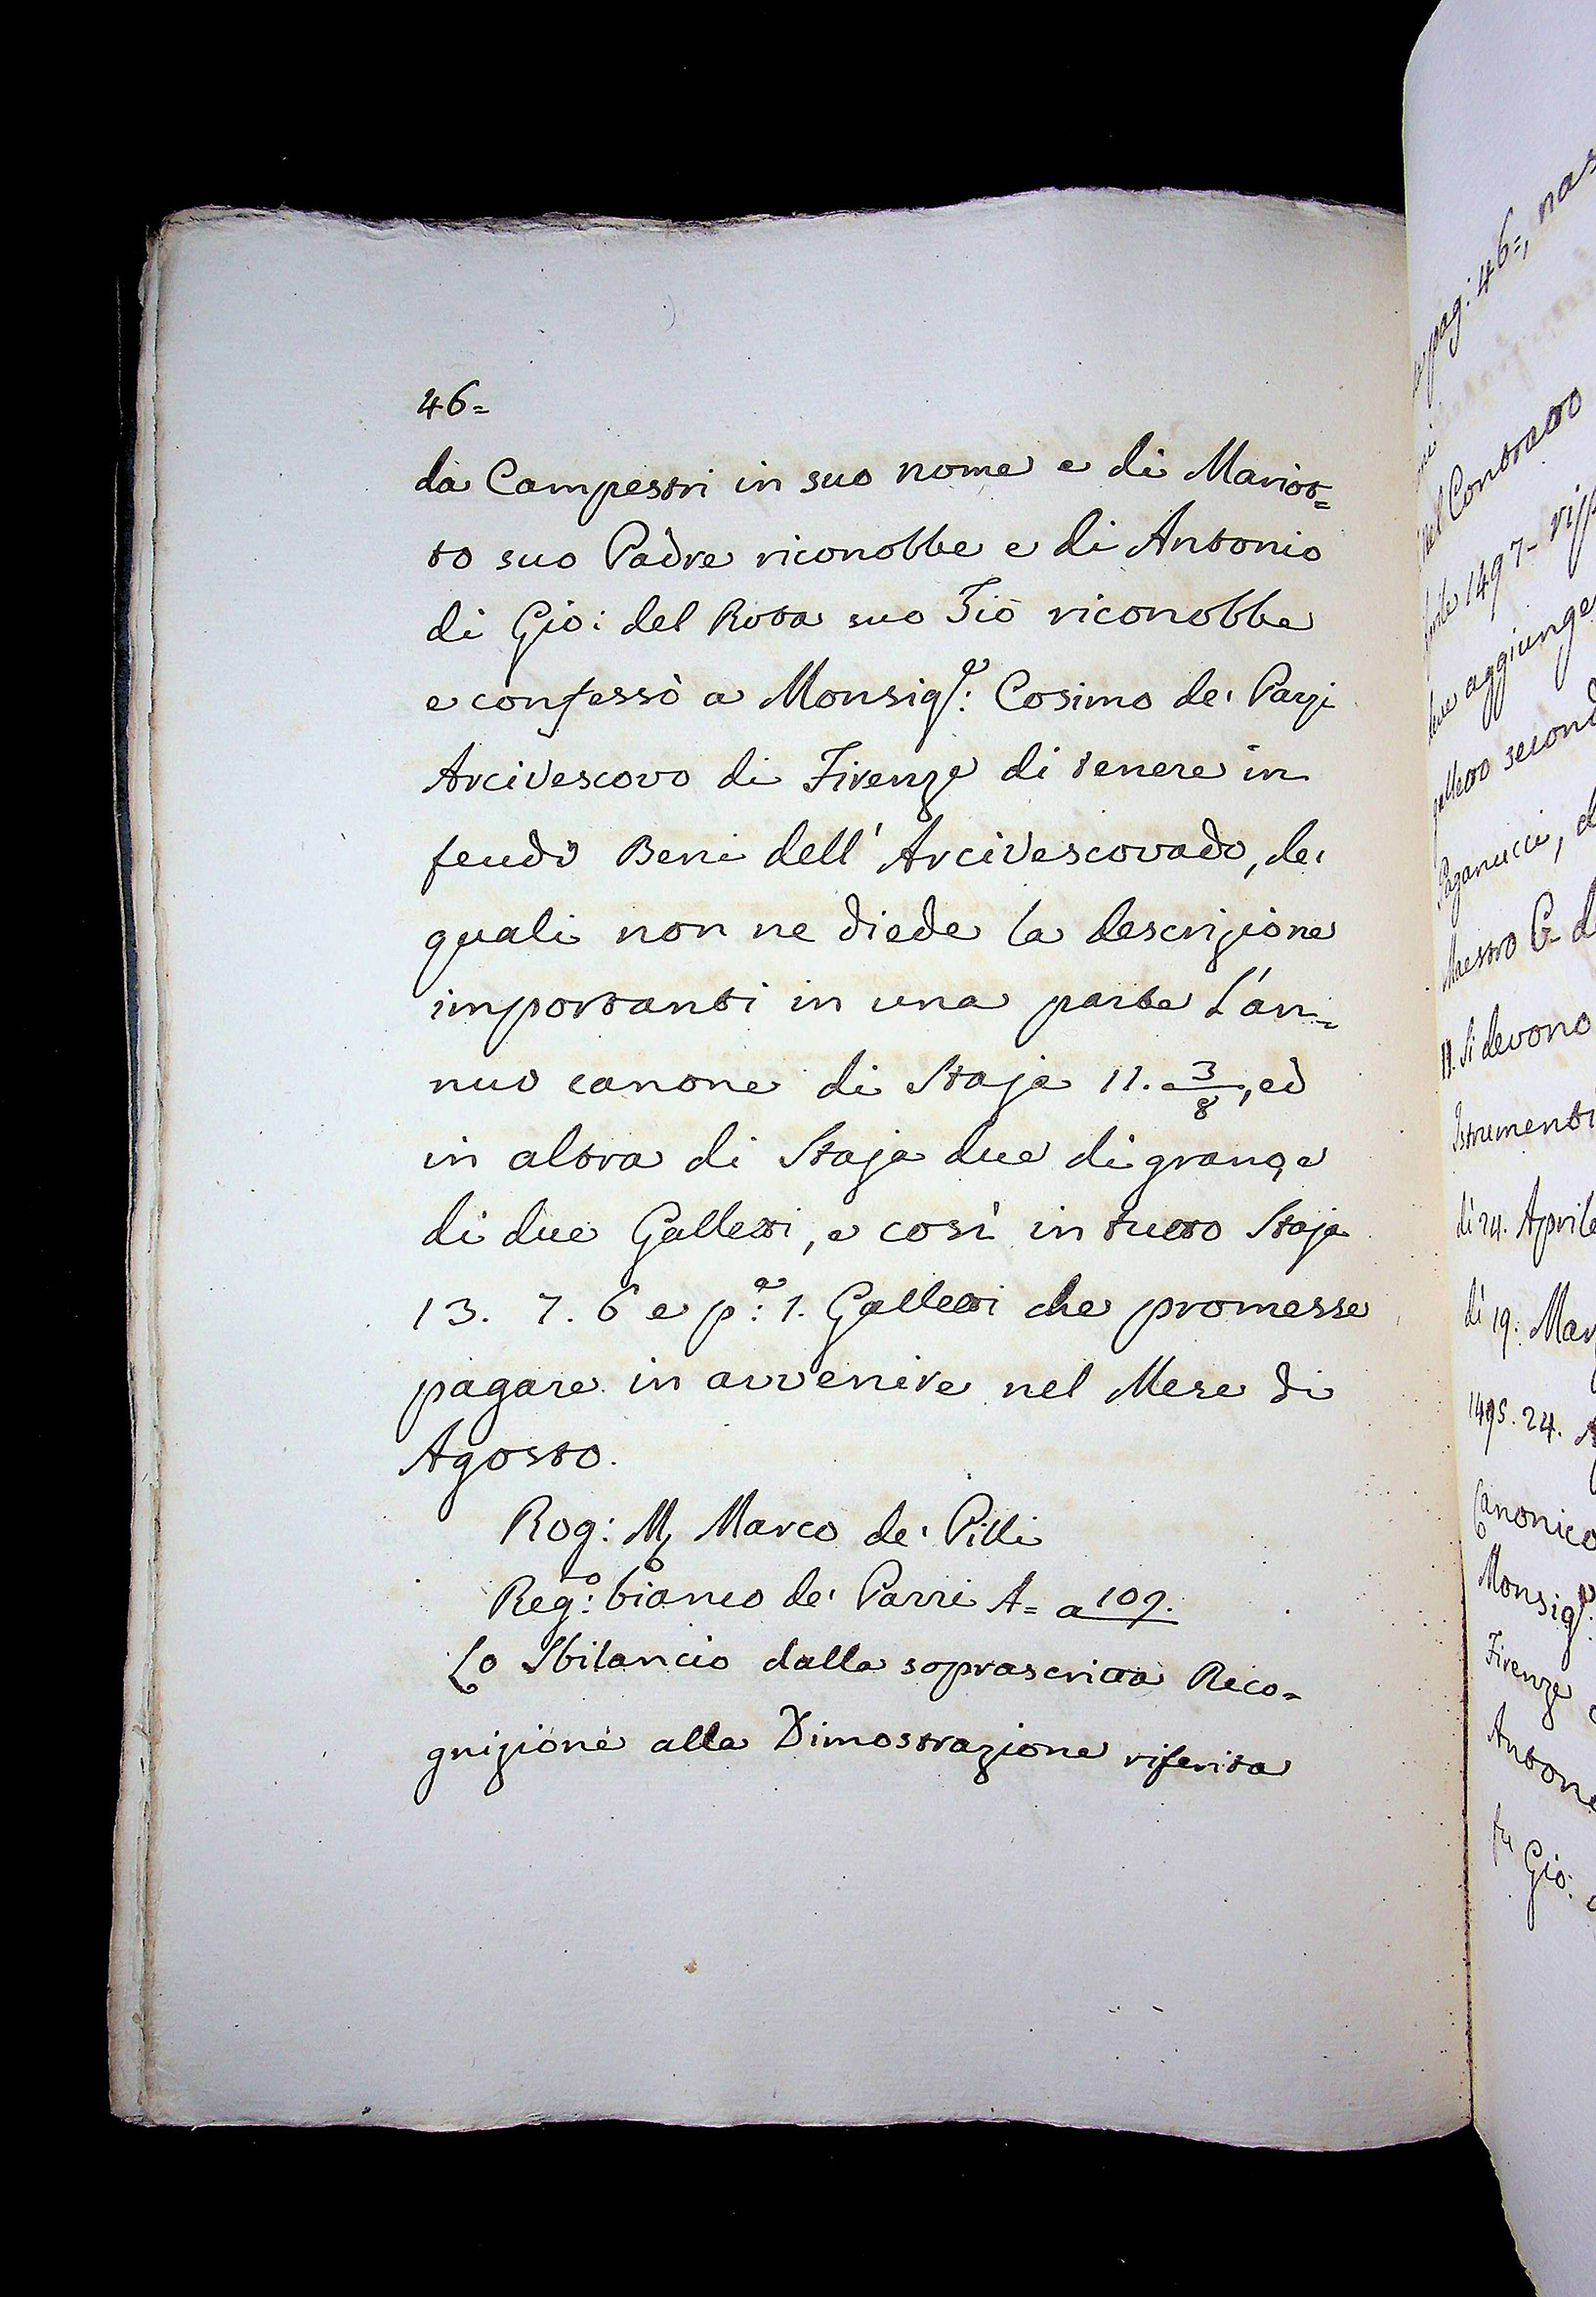 46=
da Campestri in suo nome e di Mariot=
to suo Padre riconobbe e di Antonio
di Gio: del Rota suo Zio riconobbe
e confessò a Monsig.e: Cosimo de' Pazzi
Arcivescovo di Firenze di tenere in
feudo Beni dell'Arcivescovado, de'
quali non ne diede la descrizione
importanti in una parte l'an=
nuo canone di Staja 11. 3/8, ed
in altra di Staja due di grano, e
di due Galletti, e così in tutto Staja
13. 7. 6 e p.a: 1. Galletti che promesse
pagare in avvenire nel Mese di
Agosto.
Rog: M, Marco de' Pilli
Reg.o: bianco de' Parri A= a 109.
Lo Sbilancio dalla soprascritta Reco=
gnizione alla Dimostrazione riferita
pag: 46=,
nel Contratto
1497-
aggiunge
secon
Paganucci,
Maestro G-
11. Si devono
Istrumenti
di 24. Aprile
di 19. Mar
1495. 24.
Canonico
Monsig.e:
Firenze
Antoni
fu Gio: